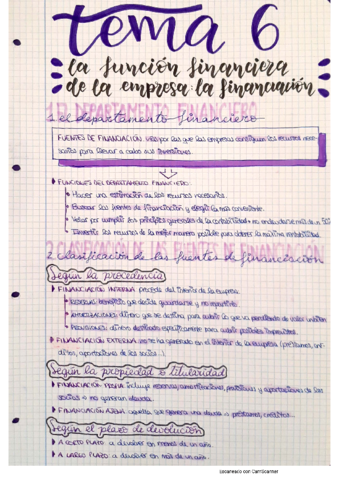 tema 6
la función financiera
de la empresa: la financiación
1. EL DEPARTAMENTO FINANCIERO
1. el departamento financiero
FUENTES DE FINANCIACIÓN: vías por las que las empresas consiguen los recursos nece-
sarios para llevar a cabo sus inversiones.
FUNCIONES DEL DEPARTAMENTO FINANCIERO
Hacer una estimación de los recursos necesarios.
Buscar las fuentes de financiación y elegir la más conveniente.
Velar por cumplir los principios generales de la
Invertir los recursos de la mejor manera posible para obtener la máxima rentabilidad.
2. CLASIFICACIÓN DE LAS FUENTES DE FINANCIACIÓN
2. clasificación de las fuentes de financiación
Según la procedencia
FINANCIACIÓN INTERNA: procede del interior de la empresa.
RESERVAS: beneficio que decide guardarse y no repartirlo.
AMORTIZACIONES: dinero que se destina para cubrir lo que va perdiendo de valor
PROVISIONES: dinero destinado específicamente para cubrir posibles imprevistos.
FINANCIACIÓN EXTERNA: no se ha generado en el interior de la empresa (préstamos, cré-
ditos, aportaciones de los socios...).
Según la propiedad o titularidad
FINANCIACIÓN PROPIA: incluye reservas, amortizaciones, provisiones y aportaciones de los
socios o no generan deuda.
FINANCIACIÓN AJENA: aquella que genera una deuda → préstamos, créditos...
Según el plazo de devolución
A CORTO PLAZO: a devolver en menos de un año.
A LARGO PLAZO: a devolver en más de un año.
Escaneado con CamScanner